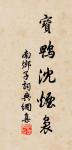 寶鴨沈煙裊
南鄉子詞典網集